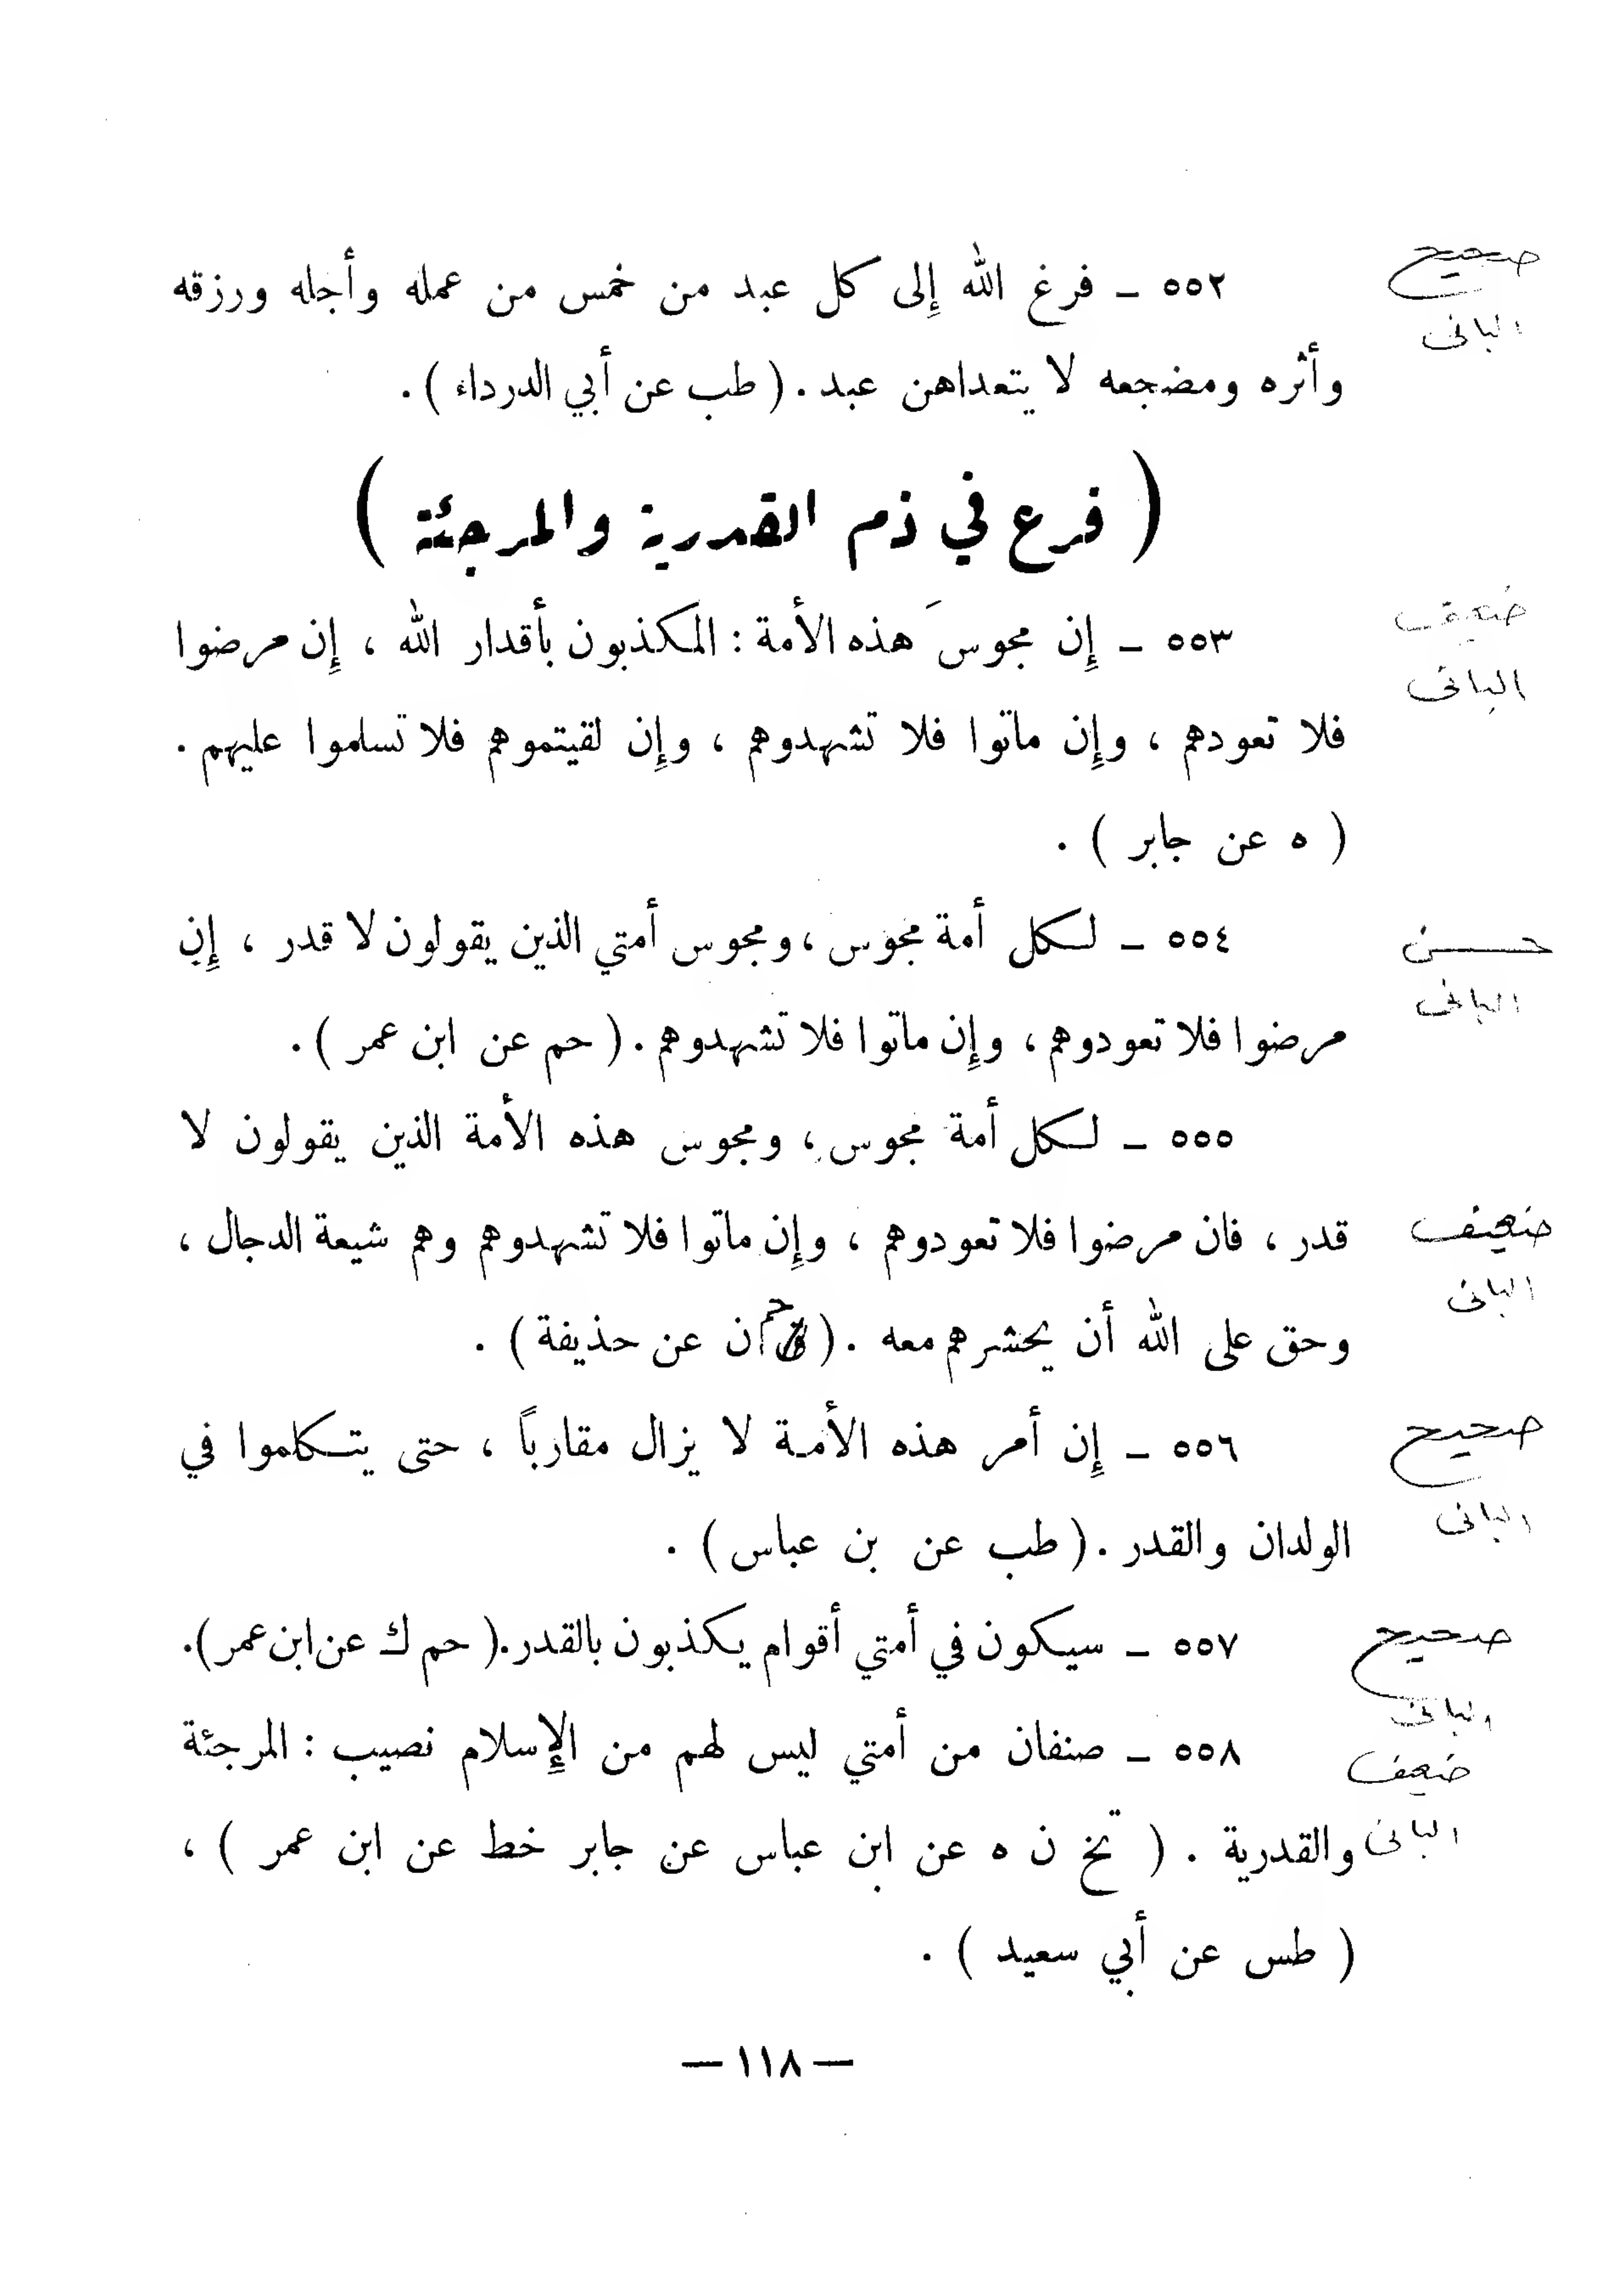 صحيح
٥٥٢ ـ فرغ الله إِلى كل عبد من خمس من عمله وأجله ورزقه
البانى
وأثره ومضجعه لا يتعداهن عبد . ( طب عن أبي الدرداء ) .
( فرع في ذم القدرية والمرجئة )
ضعيف
٥٥٣ ـ إِن مجوسَ هذه الأمة : المكذبون بأقدار الله ، إِن مرضوا
البانى
فلا تعودهم ، وإِن ماتوا فلا تشهدوهم ، وإِن لقيتموهم فلا تسلموا عليهم .
( ه عن جابر ) .
حسن
٥٥٤ ـ لكل أمة مجوس ، ومجوس أمتي الذين يقولون لا قدر ، إِن
البانى
مرضوا فلا تعودوهم ، وإِن ماتوا فلا تشهدوهم . ( حم عن ابن عمر ) .
٥٥٥ ـ لكل أمة مجوس ، ومجوس هذه الأمة الذين يقولون لا
ضعيف
قدر ، فان مرضوا فلا تعودوهم ، وإِن ماتوا فلا تشهدوهم وهم شيعة الدجال ،
البانى
وحق على الله أن يحشرهم معه . ( عن حذيفة ) .
صحيح
٥٥٦ ـ إِن أمر هذه الأمة لا يزال مقارباً ، حتى يتكلموا في
البانى
الولدان والقدر . ( طب عن بن عباس ) .
صحيح
٥٥٧ ـ سيكون في أمتي أقوام يكذبون بالقدر . ( حم ك عن ابن عمر ) .
البانى
ضعيف
٥٥٨ ـ صنفان من أمتي ليس لهم من الإِسلام نصيب : المرجئة
البانى
والقدرية . ( تخ ن ه عن ابن عباس عن جابر خط عن ابن عمر ) ،
( طس عن أبي سعيد ) .
— ١١٨ —